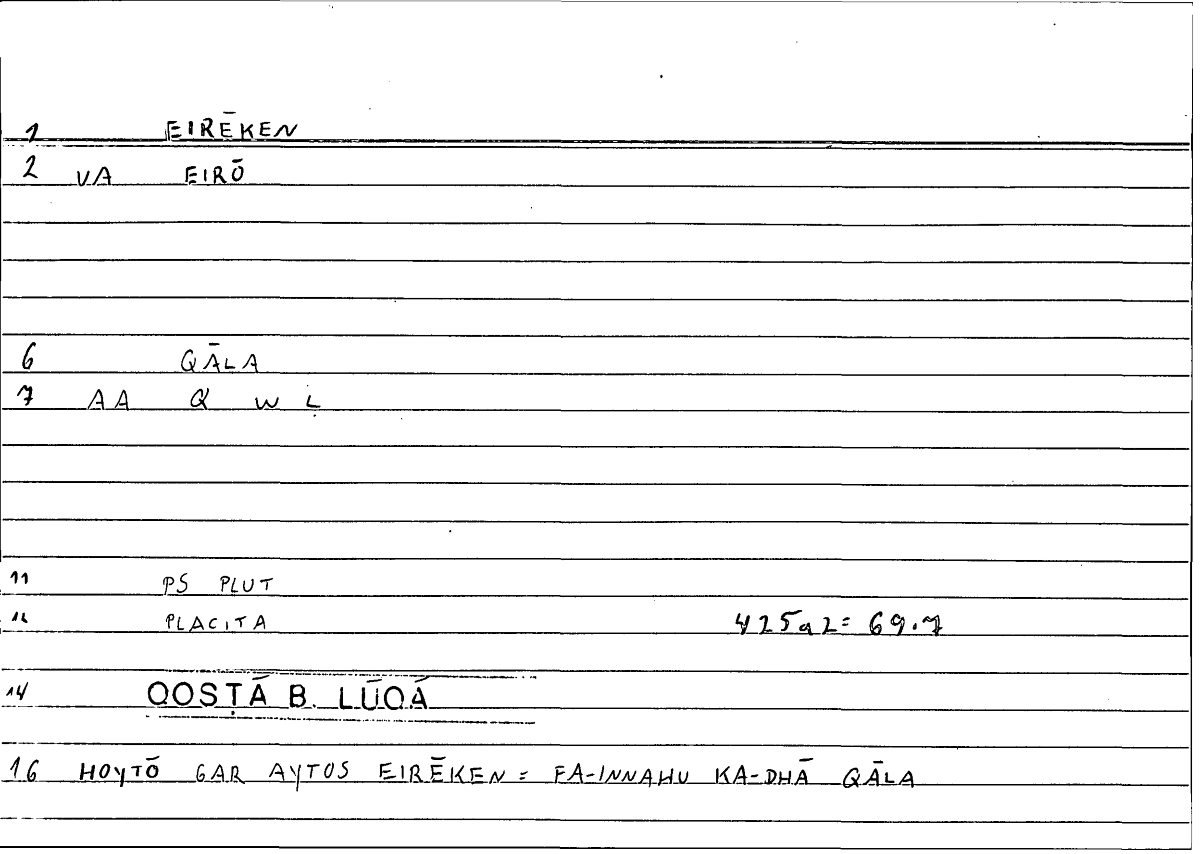 1 EIRĒKEN
2 VA EIRŌ
6 QĀLA
7 AA Q W L
11 PS PLUT
12 PLACITA 425a2= 69.7
14 QOSṬĀ B. LŪQĀ
16 HOYTŌ GAR AYTOS EIRĒKEN = FA-INNAHU KA-DHĀ QĀLA